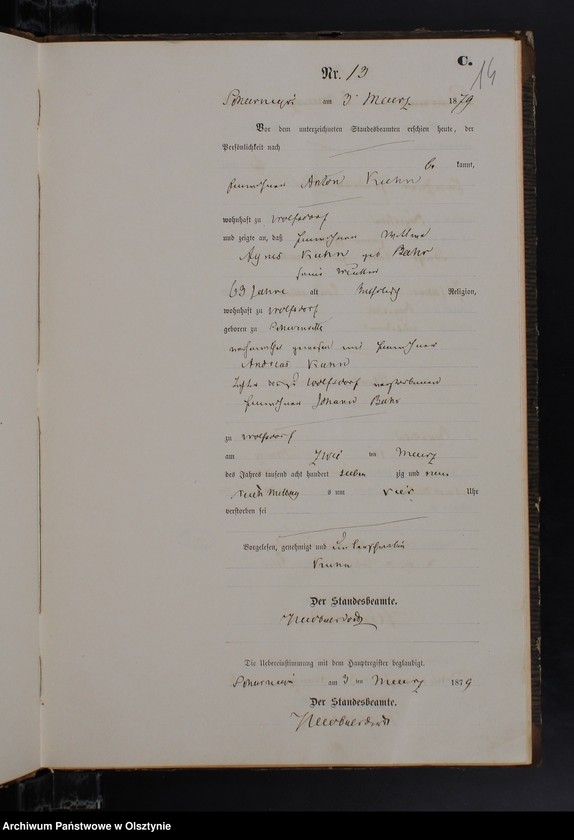 C.
14
Nr. 13
am 3 Maerz 1879
Vor dem unterzeichneten Standesbeamten erschien heute, der
Persönlichkeit nach
be kannt,
Anton Kuhn
wohnhaft zu Wolfsdorf
und zeigte an, daß
Agnes Kuhn geb Bahr
seine Mutter
63 Jahre alt katholisch Religion,
wohnhaft zu Wolfsdorf
geboren zu
Andreas Kuhn
Wolfsdorf verstorbenen
Johann Bahr
zu Wolfsdorf
am zwei ten Maerz
des Jahres tausend acht hundert sieben zig und neun
Nach Mittag s um vier Uhr
verstorben sei
Vorgelesen, genehmigt und unterschrieben
Kuhn
Der Standesbeamte.
Die Uebereinstimmung mit dem Hauptregister beglaubigt.
am 3 ten Maerz 1879
Der Standesbeamte.
Archiwum Państwowe w Olsztynie